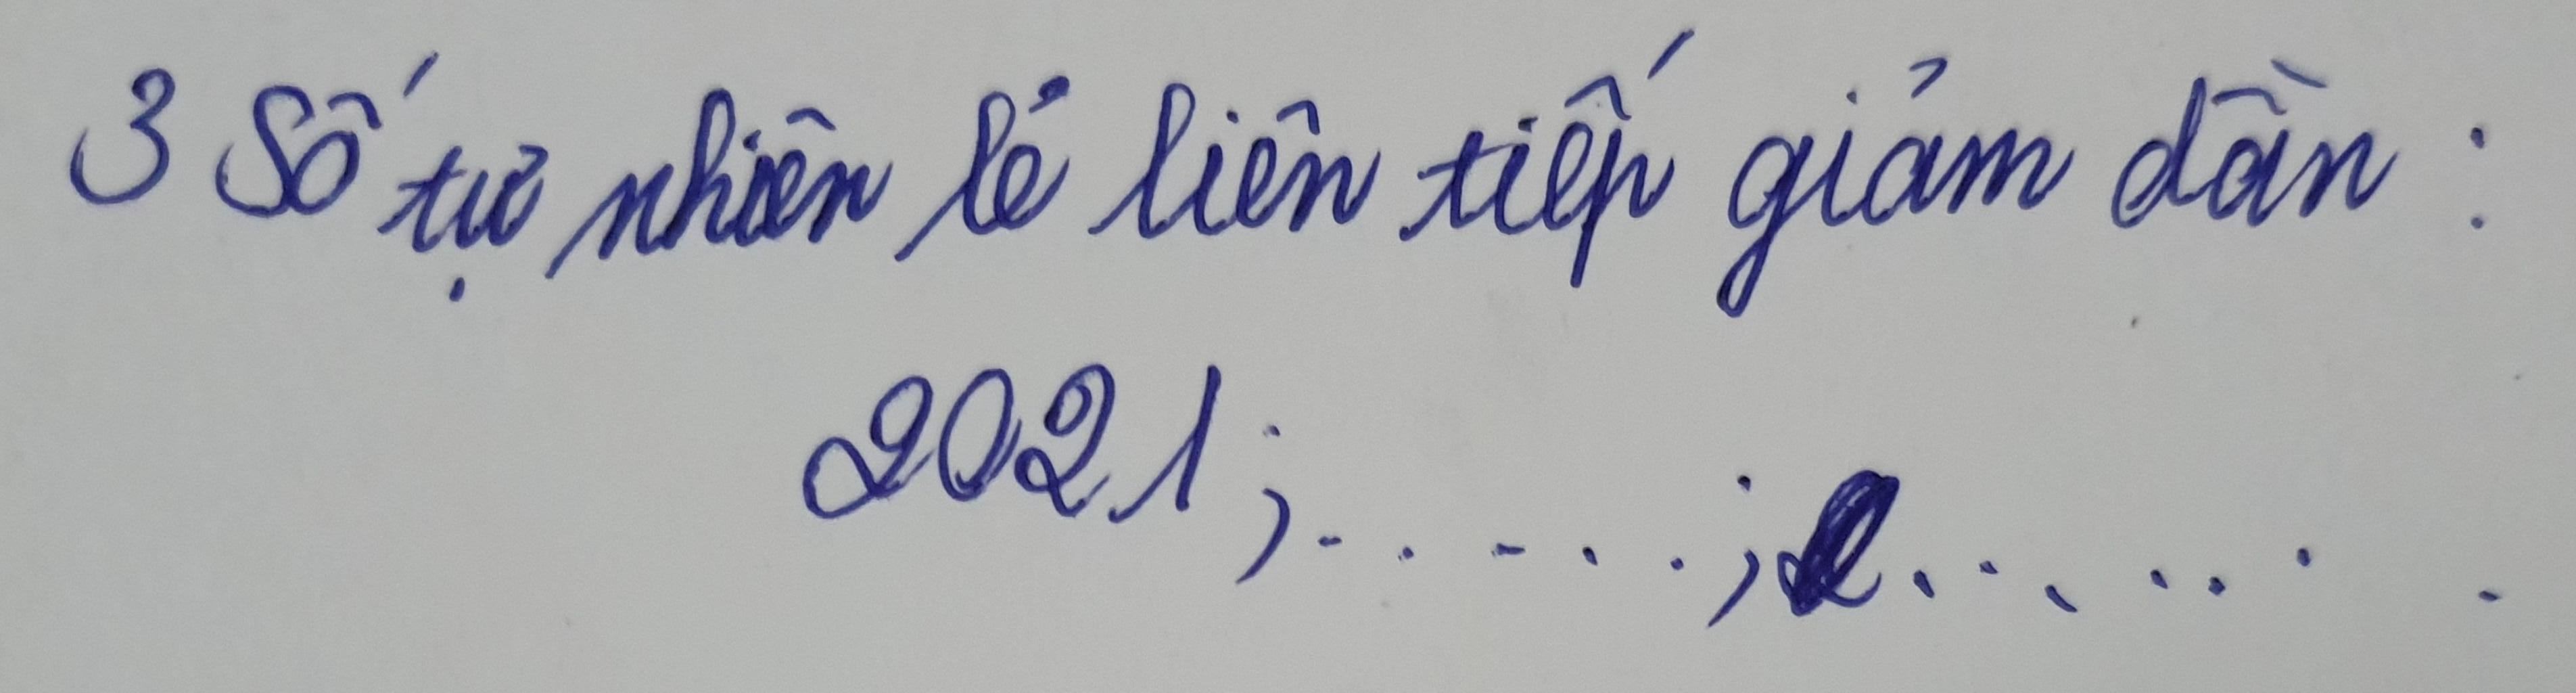 3 Số tự nhiên lẻ liên tiếp giảm dần :
2021 ; . . . . . ; . . . . . . .